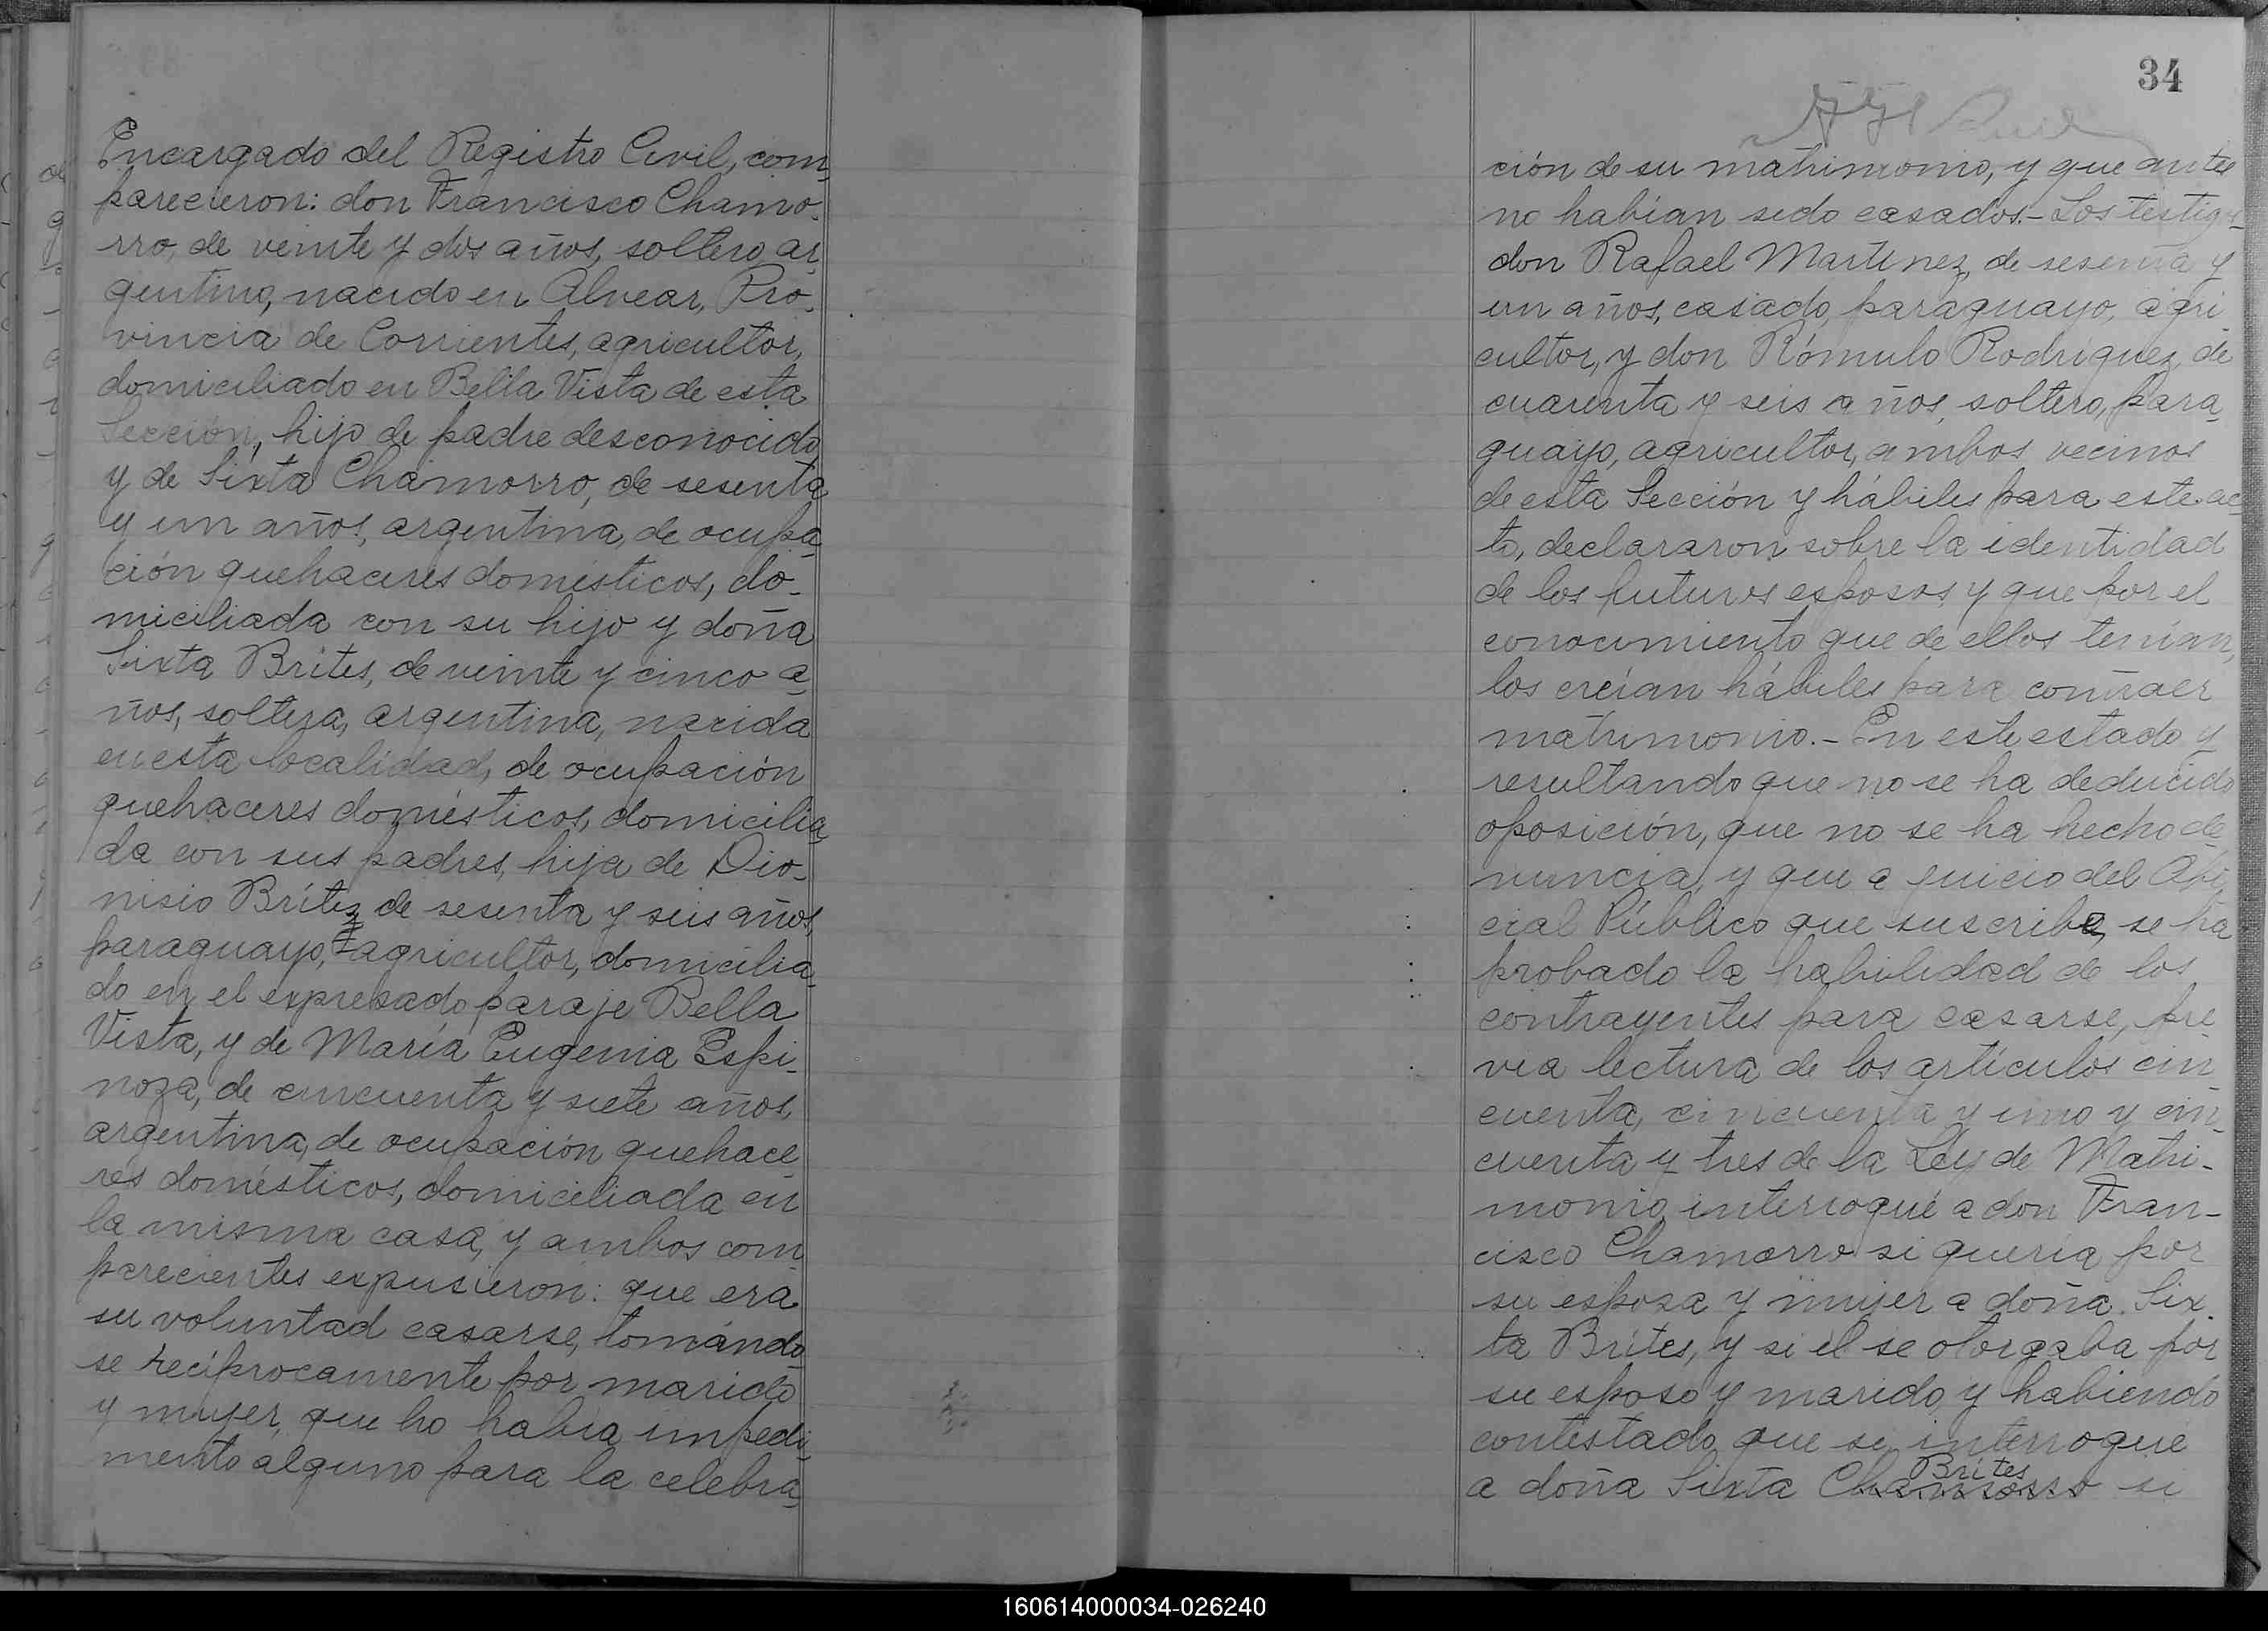 Encargado del Registro Civil, com-
parecieron: don Francisco Chamo-
rro, de veinte y dos años, soltero, ar-
gentino, nacido en Alvear, Pro-
vincia de Corrientes, agricultor,
domiciliado en Bella Vista de esta
Sección, hijo de padre desconocido
y de Sixta Chamorro, de sesenta
y un años, argentina, de ocupa-
ción quehaceres domésticos, do-
miciliada con su hijo y doña
Sixta Brites, de veinte y cinco a-
ños, soltera, argentina, nacida
en esta localidad, de ocupación
quehaceres domésticos, domicilia-
da con sus padres, hija de Dio-
nisio Brítez de sesenta y seis años,
paraguayo, agricultor, domicilia-
do en el expresado paraje Bella
Vista, y de María Eugenia Espi-
noza, de cincuenta y siete años,
argentina, de ocupación quehace-
res domésticos, domiciliada en
la misma casa, y ambos com-
parecientes expusieron: que era
su voluntad casarse, tomándo-
se recíprocamente por marido
y mujer, que no había impedi-
mento alguno para la celebra-
34
ción de su matrimonio, y que antes
no habían sido casados.- Los testigos
don Rafael Martinez, de sesenta y
un años, casado, paraguayo, agri-
cultor, y don Rómulo Rodriguez, de
cuarenta y seis años, soltero, para-
guayo, agricultor, ambos vecinos
de esta Sección y hábiles para este ac-
to, declararon sobre la identidad
de los futuros esposos y que por el
conocimiento que de ellos tenían,
los creían hábiles para contraer
matrimonio.- En este estado y
resultando que no se ha deducido
oposición, que no se ha hecho de-
nuncia, y que a juicio del Ofi-
cial Público que suscribe, se ha
probado la habilidad de los
contrayentes para casarse, pre-
via lectura de los artículos cin-
cuenta, cincuenta y uno y cin-
cuenta y tres de la Ley de Matri-
monio, interrogué a don Fran-
cisco Chamorro si quería por
su esposa y mujer a doña Six-
ta Brites, y si él se otorgaba por
su esposo y marido, y habiendo
contestado que si, interrogué
Brites
a doña Sixta Chamorro si
160614000034-026240